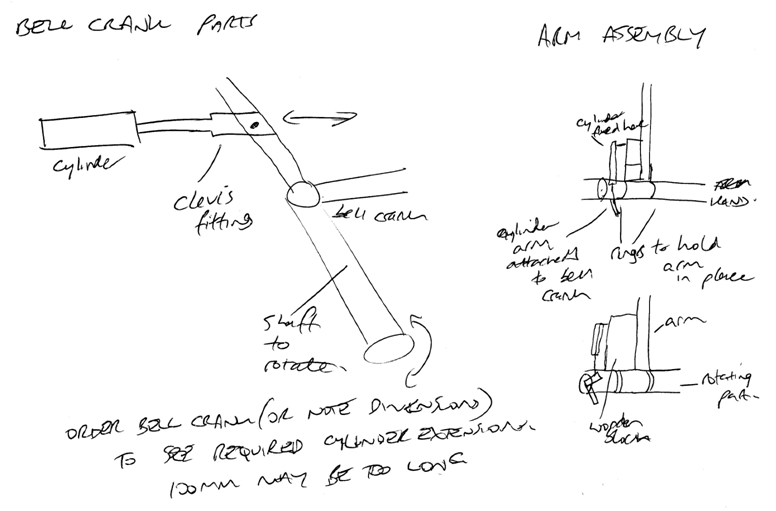 BELL CRANK PARTS
ARM ASSEMBLY
cylinder
clevis
fitting
bell crank
shaft
to
rotate.
ORDER BELL CRANK (OR NOTE DIMENSIONS)
TO SEE REQUIRED CYLINDER EXTENSION.
100MM MAY BE TOO LONG
cylinder
fixed here
cylinder
arm
attached
to bell
crank
rings to hold
arm
in place
arm
rotating
part.
wooden